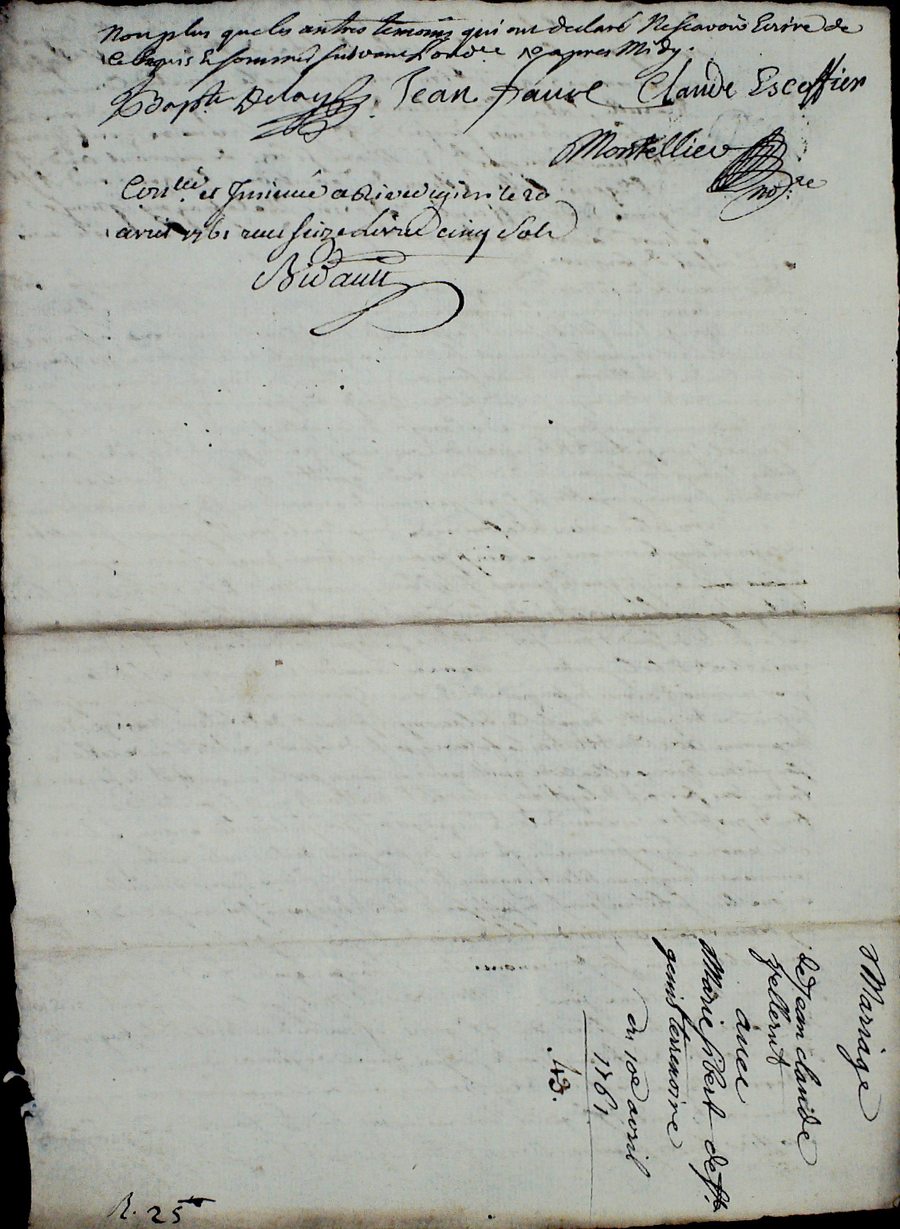 Non plus que les autres temoins qui ont declaré Ne scavoir Ecrire de
ce Requis & sommés suivant l'ord.ce apres Midy.
Bapte Delay Jean faure Claude Escoffier
Montellier
no.re
Con.lé et Insinué a Rivedegier le 20
avril 1761 recu seize livres cinq sols
Bidault
Marriage
de Jean claude
pellerin
avec
Marie fibert de st
genis terrenoire
du 10e avril
1761
43.
R. 25